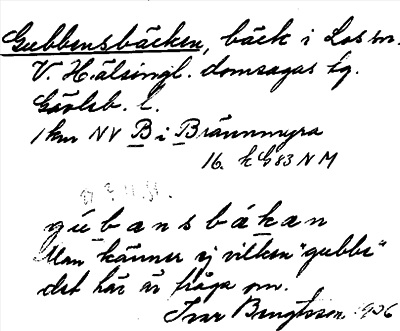 Gubbensbäcken, bäck i Los sn.
V. Hälsingl. domsagas tg.
Gävleb. l.
1 km NV B i Brännmyra
16. h G 83 N M
gúbansbäkan
Man känner ej vilken "gubbe"
det här är fråga om.
Ivar Bengtsson 1906